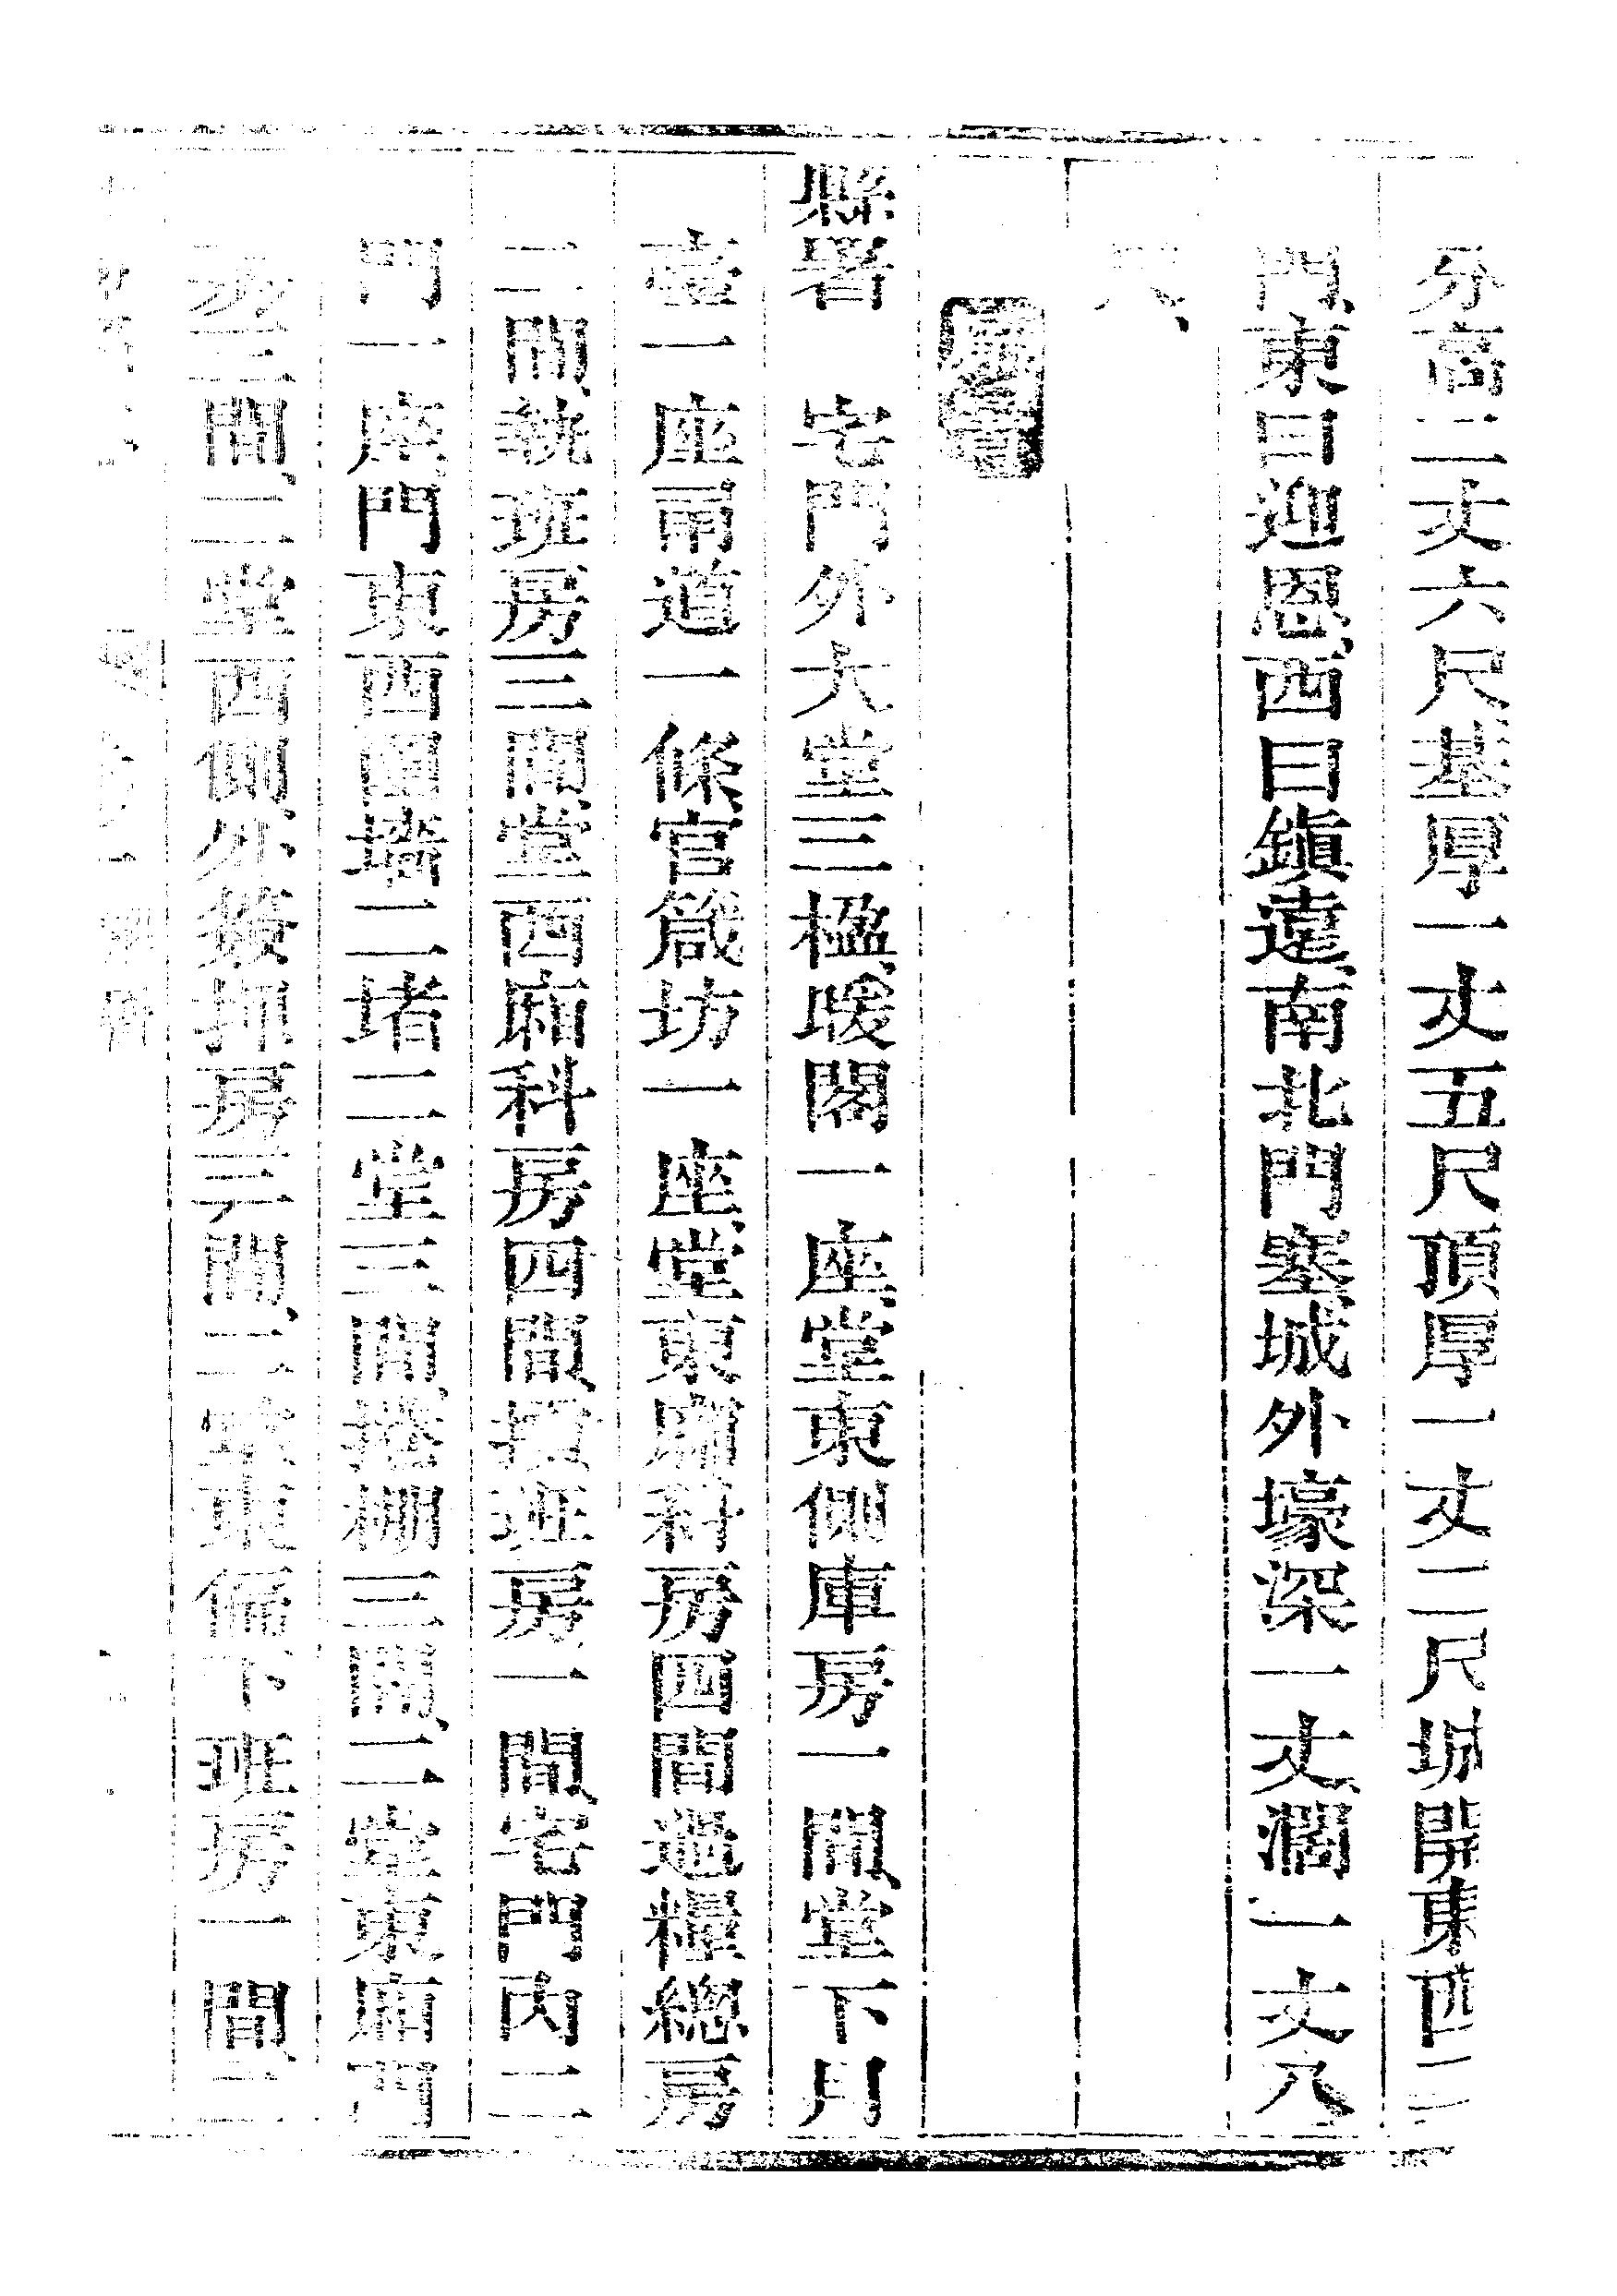 分高二丈六尺基厚一丈五尺頂厚一丈二尺城開東西二
門東曰迎恩西曰鎮遠南北門塞城外壕深一丈濶一丈八
尺
縣署 宅門外大堂三楹煖閣一座堂東側庫房一間堂下月
臺一座甬道一條官箴坊一座堂東廂科房四間遞糧總房
二間執班房三間堂西廂科房四間招班房一間宅門內二
門一座門東西圍墻二堵二堂三間捲棚三間二堂東廂門
房三間二堂西側外簽押房三間二堂東偏下班房一間三